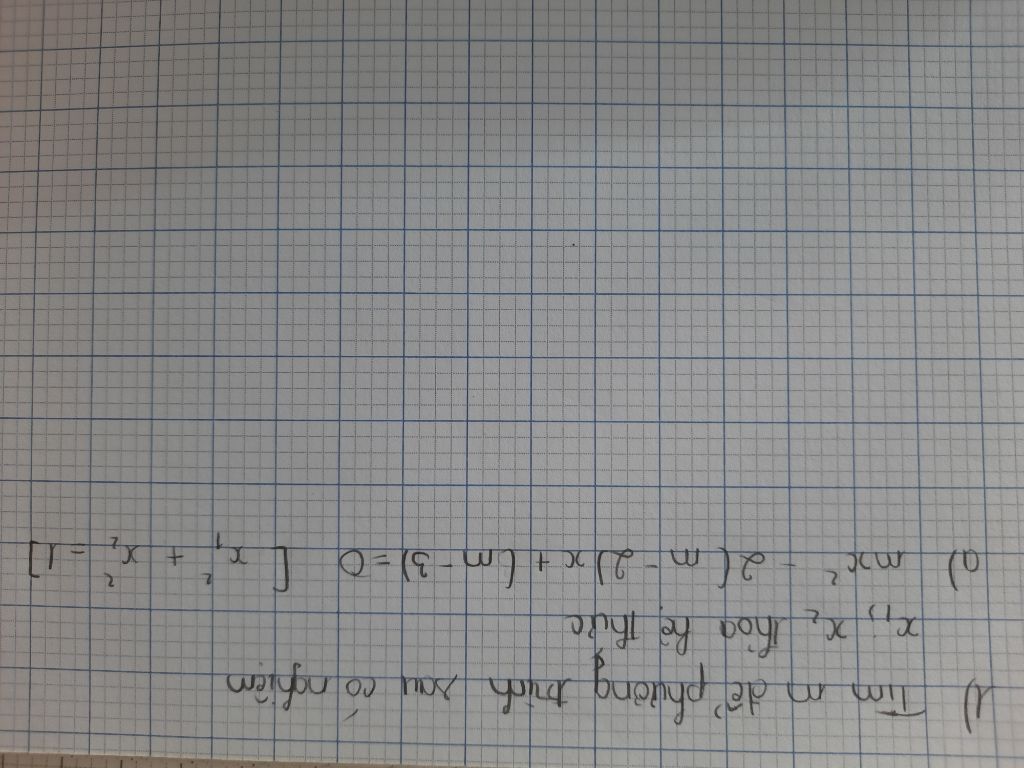 1) Tìm m để phương trình sau có nghiệm
x₁, x₂ thỏa hệ thức
a) mx² - 2(m - 2)x + (m - 3) = 0 [x₁² + x₂² = 1]